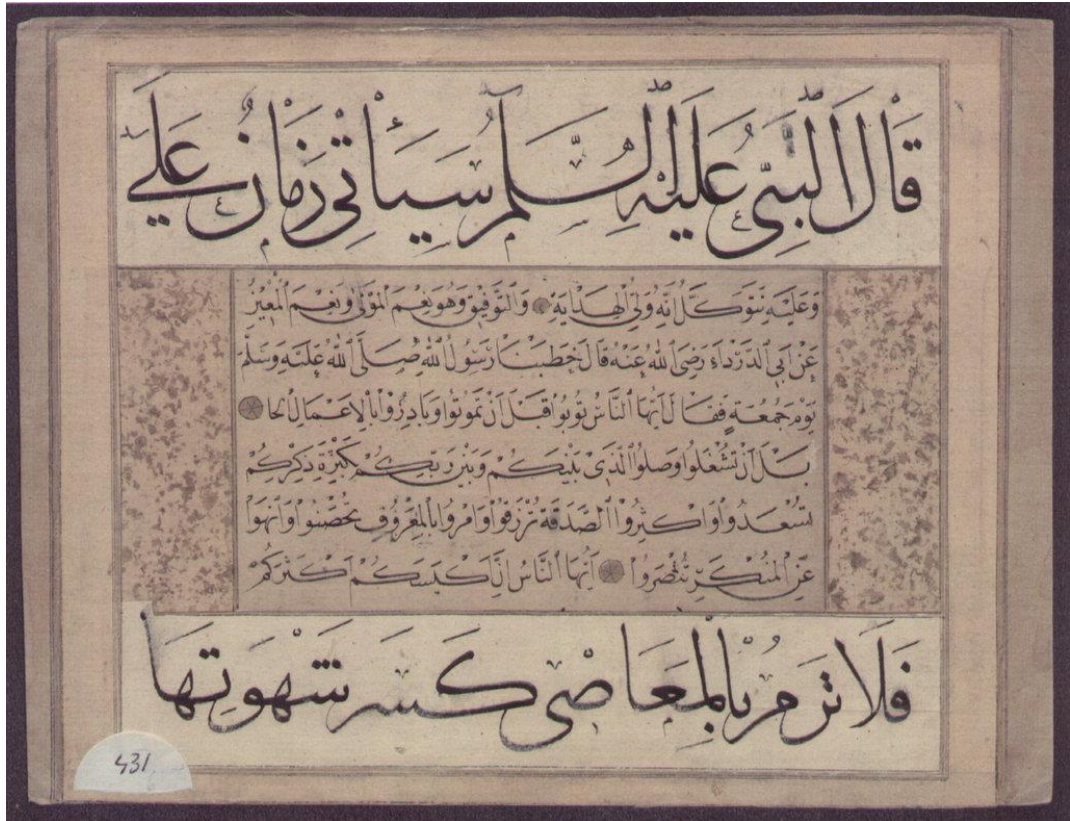 قَالَ النَّبِيُّ عَلَيْهِ السَّلَامُ سَيَأْتِي زَمَانٌ عَلَى
وَعَلَيْهِ نَتَوَكَّلُ إِنَّهُ وَلِيُّ الْهِدَايَةِ وَالتَّوْفِيقِ وَهُوَ نِعْمَ الْمَوْلَى وَنِعْمَ الْمُعِينُ
عَنْ أَبِي الدَّرْدَاءِ رَضِيَ اللهُ عَنْهُ قَالَ خَطَبَنَا رَسُولُ اللهِ صَلَّى اللهُ عَلَيْهِ وَسَلَّمَ
يَوْمَ جُمُعَةٍ فَقَالَ أَيُّهَا النَّاسُ تُوبُوا قَبْلَ أَنْ تَمُوتُوا وَبَادِرُوا بِالْأَعْمَالِ
أَنْ تُشْغَلُوا وَصِلُوا الَّذِي بَيْنَكُمْ وَبَيْنَ رَبِّكُمْ بِكَثْرَةِ ذِكْرِكُمْ
تَسْعَدُوا وَأَكْثِرُوا الصَّدَقَةَ تُرْزَقُوا وَامُرُوا بِالْمَعْرُوفِ تُحْصَنُوا وَانْهَوْا
عَنِ الْمُنْكَرِ تُنْصَرُوا أَيُّهَا النَّاسُ إِنَّ أَكْيَسَكُمْ أَكْثَرُكُمْ
فَلَا تَرُمْ بِالْمَعَاصِي كَسْرَ شَهْوَتِهَا
431